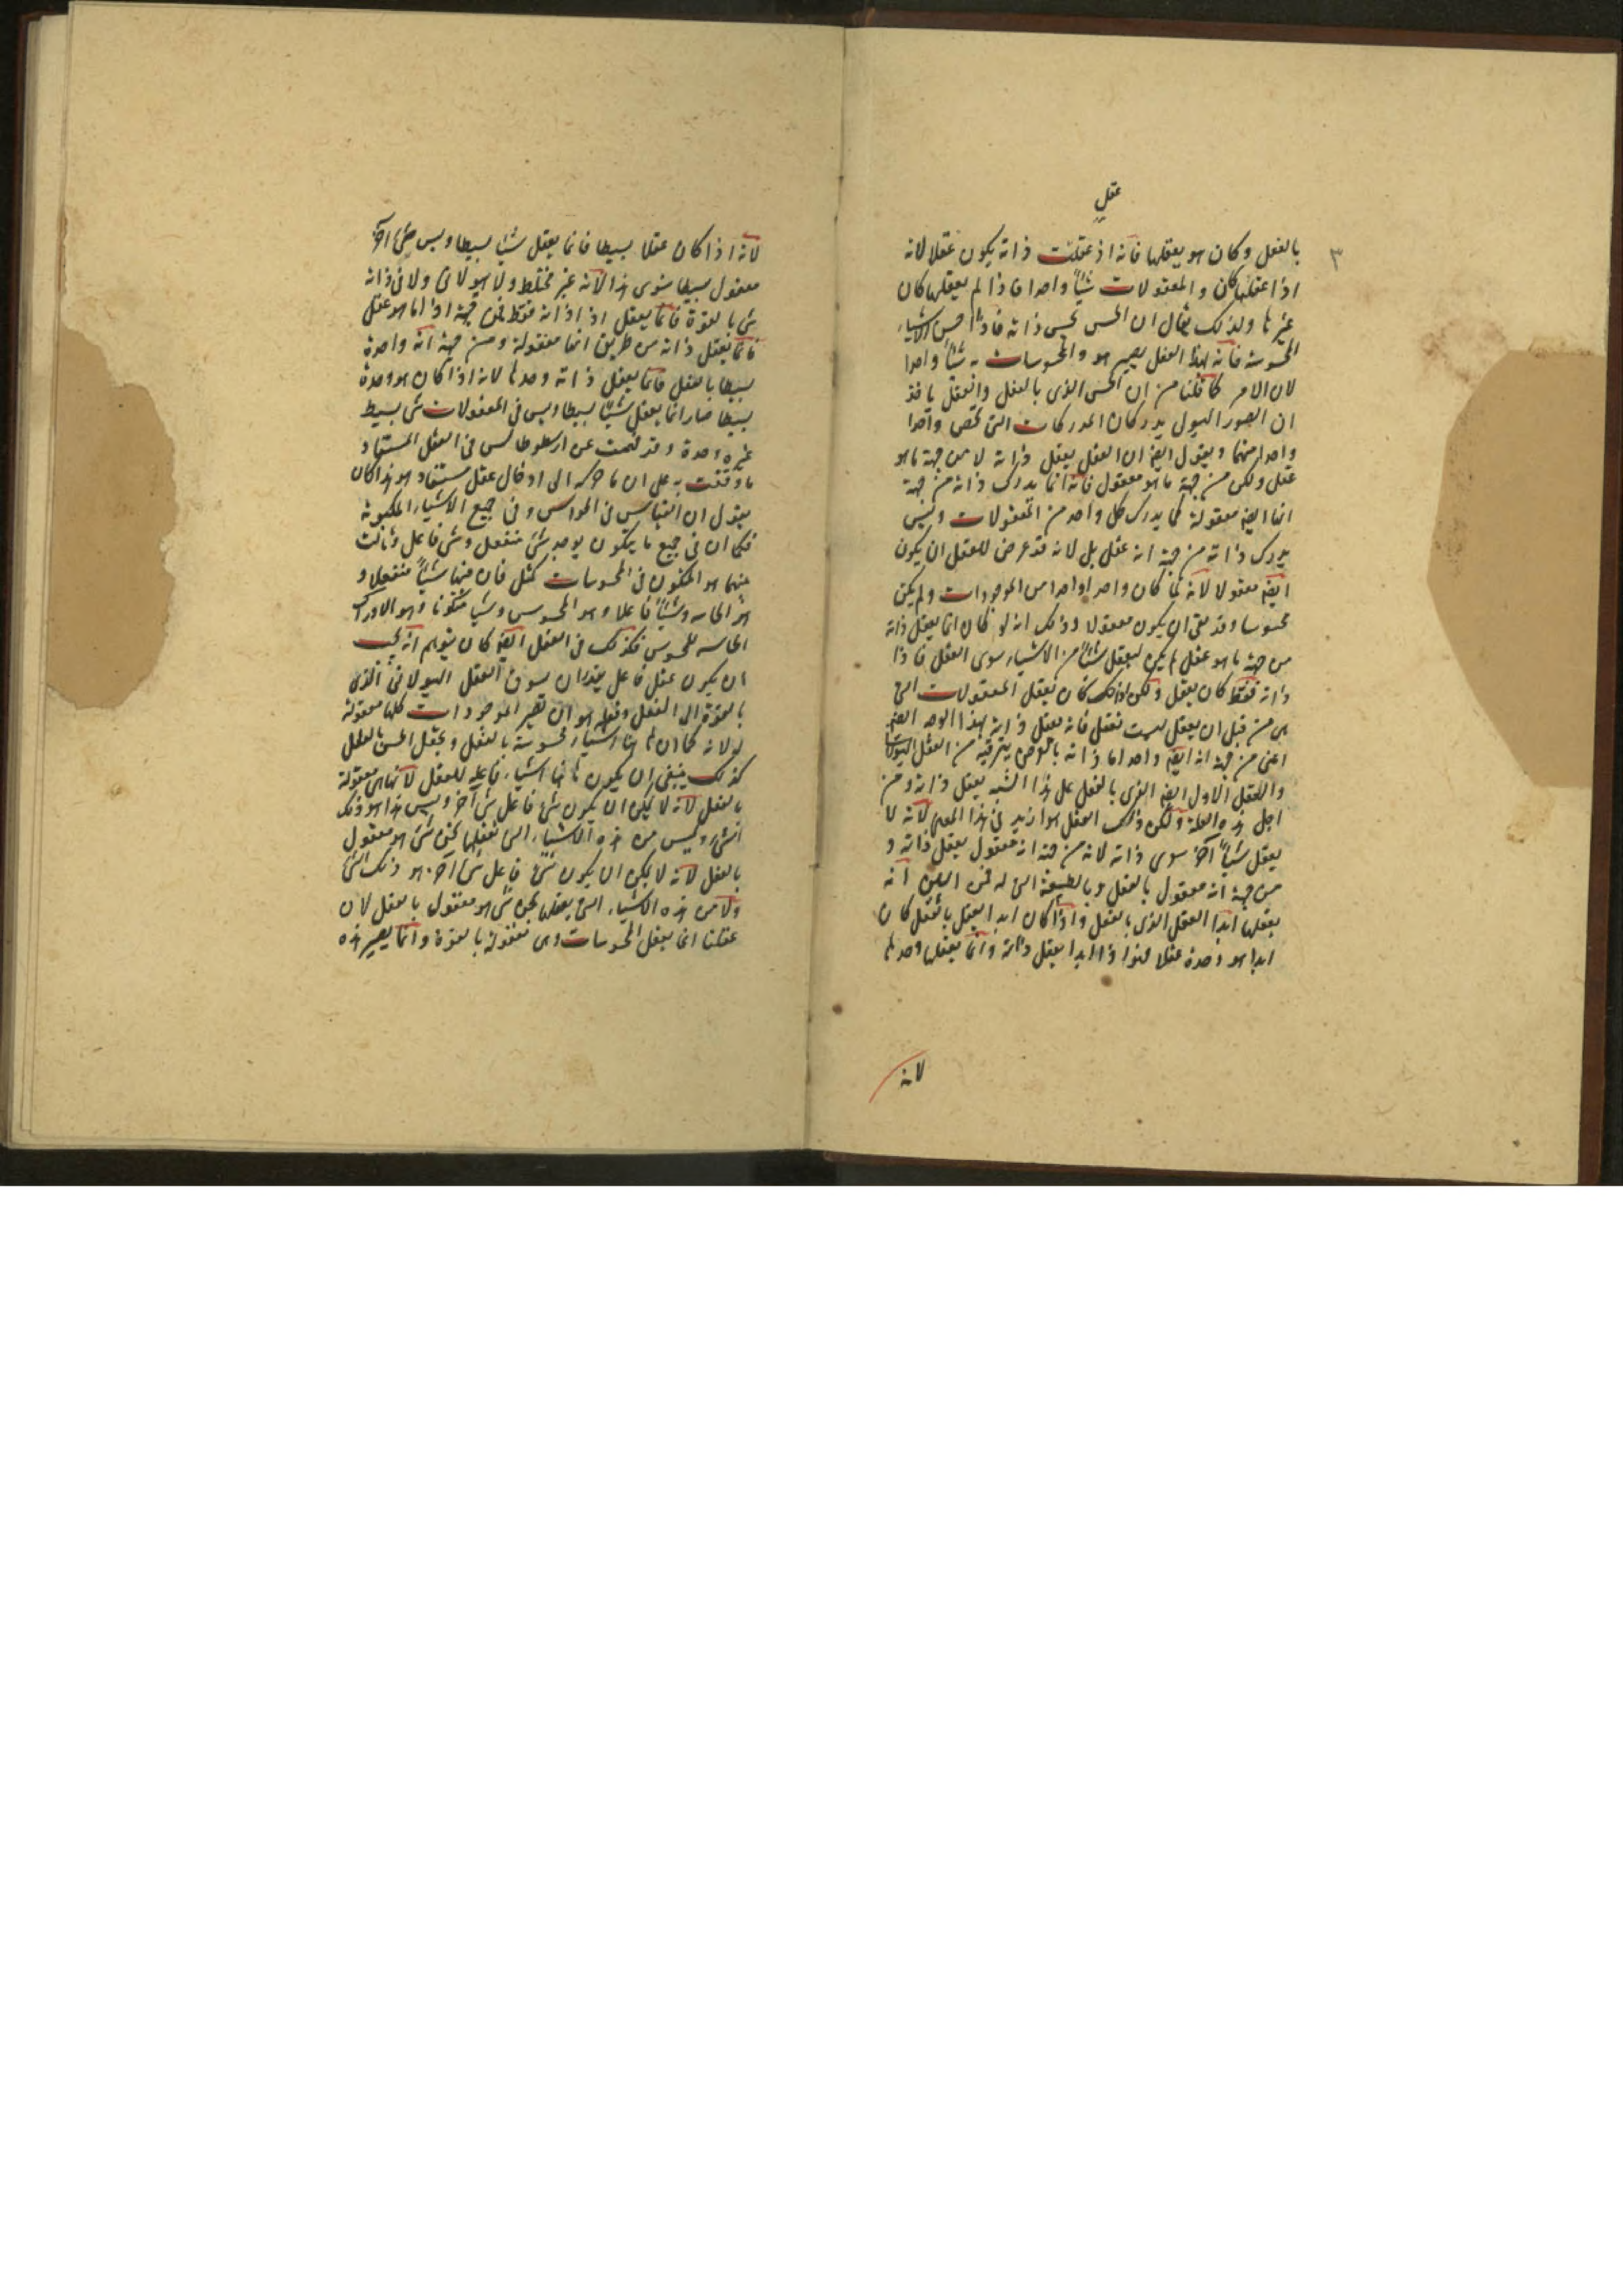 عقل
٣
بالفعل وكان هو يعقلها فانه اذ عقلت ذاته يكون عقلا لانه
اذا عقلها كان والمعقولات شيأ واحدا فاذا لم يعقلها كان
غيرها ولذلك يقال ان الحس يحس ذاته فاذا حس الاشياء
المحسوسة فانه بهذا الفعل يصير هو والمحسوسات به شيأ واحدا
لان الامر كما قلنا من ان الحس الذى بالفعل والعقل ياخذ
ان الصور الهيول يدركان المدركات التى تخص واحدا
واحدا منهما ويقول ايضا ان العقل يعقل ذاته لا من جهة ما هو
عقل ولكن من جهة ما هو معقول فانه انما يدرك ذاته من جهة
انها ايضا معقولة كما يدرك كل واحد من المعقولات وليس
يدرك ذاته من جهة انه عقل بل لانه قد عرض للعقل ان يكون
ايضا معقولا لانه لما كان واحدا واحدا من الموجودات ولم يكن
محسوسا وقد بقى ان يكون معقولا وذلك انه لو كان انما يعقل ذاته
من جهة ما هو عقل لم يكن ليعقل شيأ من الاشياء سوى العقل فاذا
ذاته فقط كان يعقل ولكن لذلك كان يعقل المعقولات التى
هى من قبل ان يعقل ليست تعقل فانه يعقل ذاته بهذا الوجه ايضا
اعنى من جهة انه ايضا واحد اما ذاته بالعرض يترقيه من العقل الهيولانى
والعقل الاول ايضا الذى بالفعل على هذا الشبه يعقل ذاته ومن
اجل هذه العلة ولكن ذلك العقل هو ازيد فى هذا المعنى لانه لا
يعقل شيأ آخر سوى ذاته لانه من جهة انه معقول يعقل ذاته و
من جهة انه معقول بالفعل وبالطبيعة التى له فمن البين انه
يعقلها ابدا العقل الذى بالفعل واذا كان ابدا يعقل بالفعل كان
ابدا هو وحده عقلا فهو اذا ابدا يعقل ذاته وانما يعقلها وحدها
لانه
لانه اذا كان عقلا بسيطا فانما يعقل شيأ بسيطا وليس شئ آخر
معقول بسيطا سوى هذا لانه غير مختلط ولا هيولانى ولا فى ذاته
شئ بالقوة فانما يعقل اذا ذاته فقط فمن جهة اذا اما هو عقل
فانما يعقل ذاته من طريق انها معقولة ومن جهة انه واحدة
بسيطا بالفعل فانما يعقل ذاته وحدها لانه اذا كان هو وحده
بسيطا صار انما يعقل شيأ بسيطا وليس فى المعقولات شئ بسيط
غيره وحده وقد فهمت عن ارسطوطالس فى العقل المستفاد
ما وقفت به على ان ما حركه الى ادخال عقل مستفاد هو هذا كان
يقول ان القياس فى الحواس وفى جميع الاشياء المكونة
فكما ان فى جميع ما يتكون يوجد شئ منفعل وشئ فاعل وثالث
منهما هو المتكون فى المحسوسات كمثل فان فيها شيأ منفعلا و
هو الحاسه وشيأ فاعلا وهو المحسوس وشيأ متكونا وهو الادراك
الحاسه للمحسوس فكذلك فى العقل ايضا كان يتوهم انه يجب
ان يكون عقل فاعل يقدر ان يسوق العقل الهيولانى الذى
بالقوة الى الفعل وفعله هو ان تصير الموجودات كلها معقولة
له لانه كما ان هاهنا اشياء محسوسة بالفعل وتجعل الحس بالفعل
كذلك ينبغى ان يكون هاهنا اشياء فاعله للعقل لانها هى معقولة
بالفعل لانه لا يمكن ان يكون شئ فاعل شئ آخر وليس هذا هو ذلك
الشئ وليس من هذه الاشياء التى نعقلها نحن شئ هو معقول
بالفعل لانه لا يمكن ان يكون شئ فاعل شئ آخر هو ذلك الشئ
ولا من هذه الاشياء التى يعقلها نحن شئ هو معقول بالفعل لان
عقلنا انما يعقل المحسوسات وهى معقولة بالقوة وانما يصير هذه